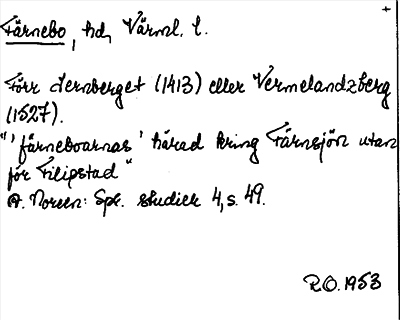 Färnebo, hd, Värml. l.
Förr Jernberget (1413) eller Vermelandzberg
(1527).
"'färneboarnas' härad kring Färnsjön utan
för Filipstad"
A. Noreen: Spr. studier 4, s. 49.
R.O. 1953